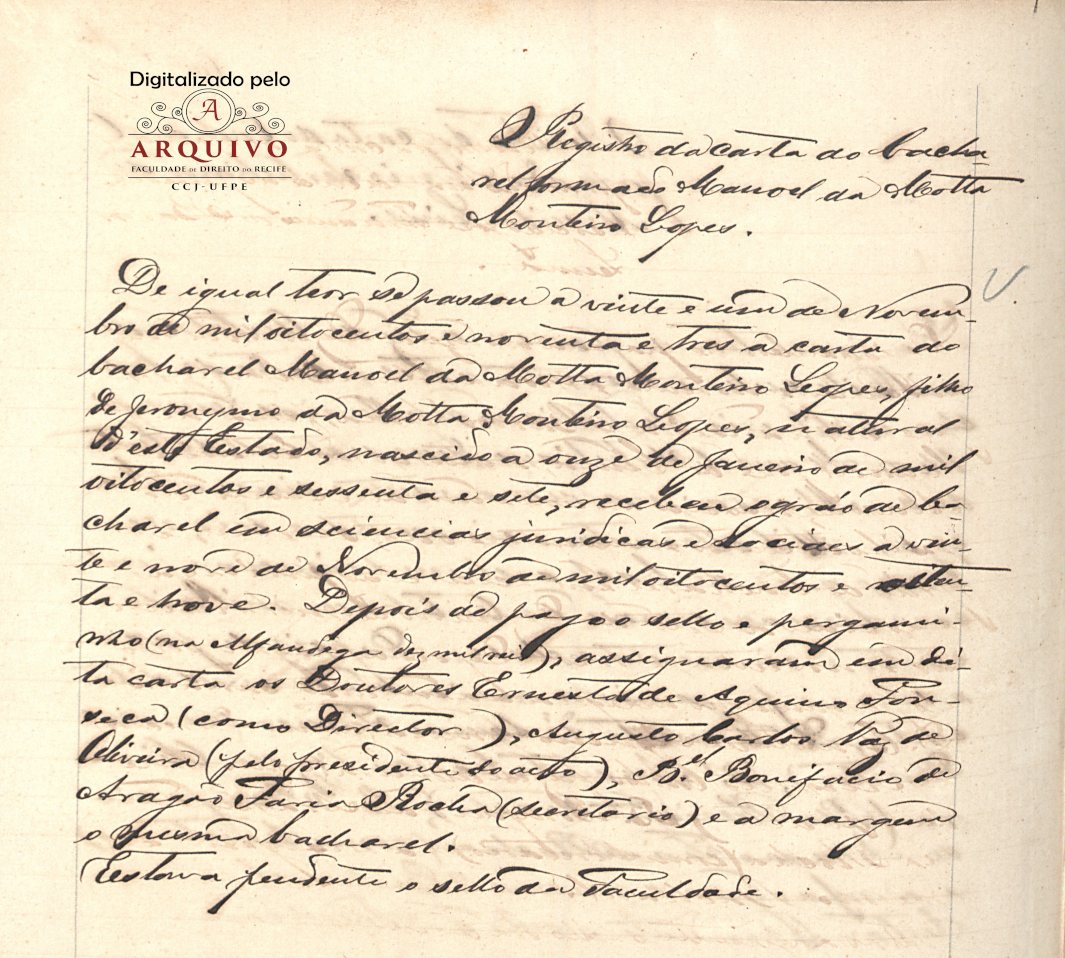 Digitalizado pelo
A
ARQUIVO
FACULDADE DE DIREITO DO RECIFE
CCJ-UFPE
Registro da carta do bacha
rel formado Manoel da Motta
Monteiro Lopes.
De igual teor se passou a vinte e um de Novem-
bro de mil oitocentos e noventa e tres a carta do
bacharel Manoel da Motta Monteiro Lopes, filho
de Jeronymo da Motta Monteiro Lopes, natural
d'este Estado, nascido a onze de Janeiro de mil
oitocentos e sessenta e sete, recebeu o gráo de ba
charel em sciencias juridicas e sociaes a vin-
te e nove de Novembro de mil oitocentos e oiten
ta e nove. Depois de pago o sello e pergami-
nho (na Alfandega dez mil reis), assignaram em di-
ta carta os Doutores Ernesto de Aquino Fon-
seca (como Director), Augusto Carlos Vaz de
Oliveira (pelo presidente do acto), B.el Bonifacio de
Aragão Faria Rocha (secretario) e a margem
o mesmo bacharel.
Estava pendente o sello da Faculdade.